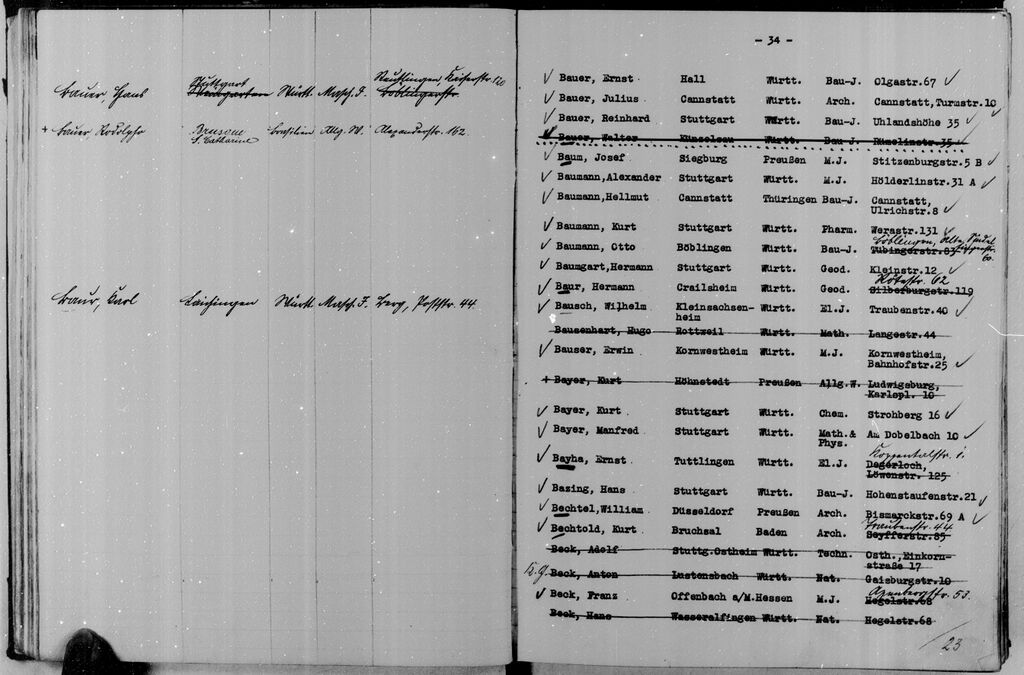 Bauer, Hans Stuttgart Württ. Masch.I. Reutlingen Kaiserstr. 120
Böblingerstr.
+ Bauer Rodolpho Brusque Brasilien Allg. W. Alexanderstr. 162
S. Catharina
Baur, Karl Laichingen Württ. Masch. I. Berg, Poststr. 44
- 34 -
Bauer, Ernst Hall Württ. Bau-J. Olgastr.67
Bauer, Julius Cannstatt Württ. Arch. Cannstatt,Turmstr.10
Bauer, Reinhard Stuttgart Württ. Bau-J. Uhlandshöhe 35
Bauer, Walter Künzelsau Württ. Bau-J. Rümelinstr.35
Baum, Josef Siegburg Preußen M.J. Stitzenburgstr.5 B
Baumann,Alexander Stuttgart Württ. M.J. Hölderlinstr.31 A
Baumann,Hellmut Cannstatt Thüringen Bau-J. Cannstatt,
Ulrichstr.8
Baumann, Kurt Stuttgart Württ. Pharm. Werastr.131
Böblingen, Alte
Baumann, Otto Böblingen Württ. Bau-J. Tübingerstr.83
60.
Baumgart,Hermann Stuttgart Württ. Geod. Kleinstr.12
62
Baur, Hermann Crailsheim Württ. Geod. Silberburgstr.119
Bausch, Wilhelm Kleinsachsen- Württ. El.J. Traubenstr.40
heim
Bausenhart, Hugo Rottweil Württ. Math. Langestr.44
Bauser, Erwin Kornwestheim Württ. M.J. Kornwestheim,
Bahnhofstr.25
+ Bayer, Kurt Höhnstedt Preußen Allg.W. Ludwigsburg,
Karlspl. 10
Bayer, Kurt Stuttgart Württ. Chem. Strohberg 16
Bayer, Manfred Stuttgart Württ. Math.& Am Dobelbach 10
Phys.
Koppentalstr. 1
Bayha, Ernst Tuttlingen Württ. El.J. Degerloch,
Löwenstr. 125
Bazing, Hans Stuttgart Württ. Bau-J. Hohenstaufenstr.21
Bechtel,William Düsseldorf Preußen Arch. Bismarckstr.69 A
Traubenstr. 44
Bechtold, Kurt Bruchsal Baden Arch. Seyfferstr.85
Beck, Adolf Stuttg.Ostheim Württ. Techn. Osth.,Einkorn-
straße 17
Beck, Anton Lustensbach Württ. Nat. Gaisburgstr.10
Azenbergstr. 53.
Beck, Franz Offenbach a/M.Hessen M.J. Hegelstr.68
Beck, Hans Wasseralfingen Württ. Nat. Hegelstr.68
23